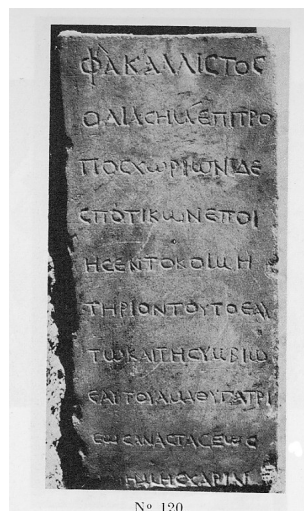 ΦΛ ΚΑΛΛΙϹΤΟϹ
Ο ΔΙΑϹΗΜ ΕΠΙΤΡΟ
ΠΟϹ ΧΩΡΙΩΝ ΔΕ
ϹΠΟΤΙΚΩΝ ΕΠΟΙ
ΗϹΕΝ ΤΟ ΚΟΙΜΗ
ΤΗΡΙΟΝ ΤΟΥΤΟ ΕΑΥ
ΤΩ ΚΑΙ ΤΗ ϹΥΜΒΙΩ
ΕΑΥΤΟΥ ΑΜΑ ΘΥΓΑΤΡΙ
ΕΩϹ ΑΝΑϹΤΑϹΕΩϹ
ΧΑΡΙΝ
Nº 120